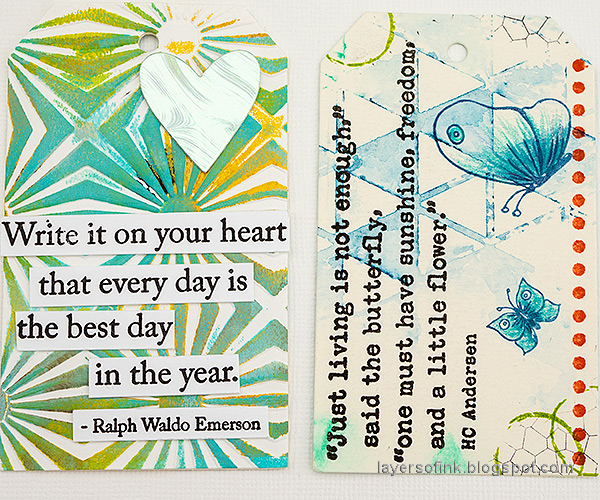 Write it on your heart
that every day is
the best day
in the year.
- Ralph Waldo Emerson
“Just living is not enough,”
said the butterfly,
“one must have sunshine, freedom,
and a little flower.”
HC Andersen
layersofink.blogspot.com